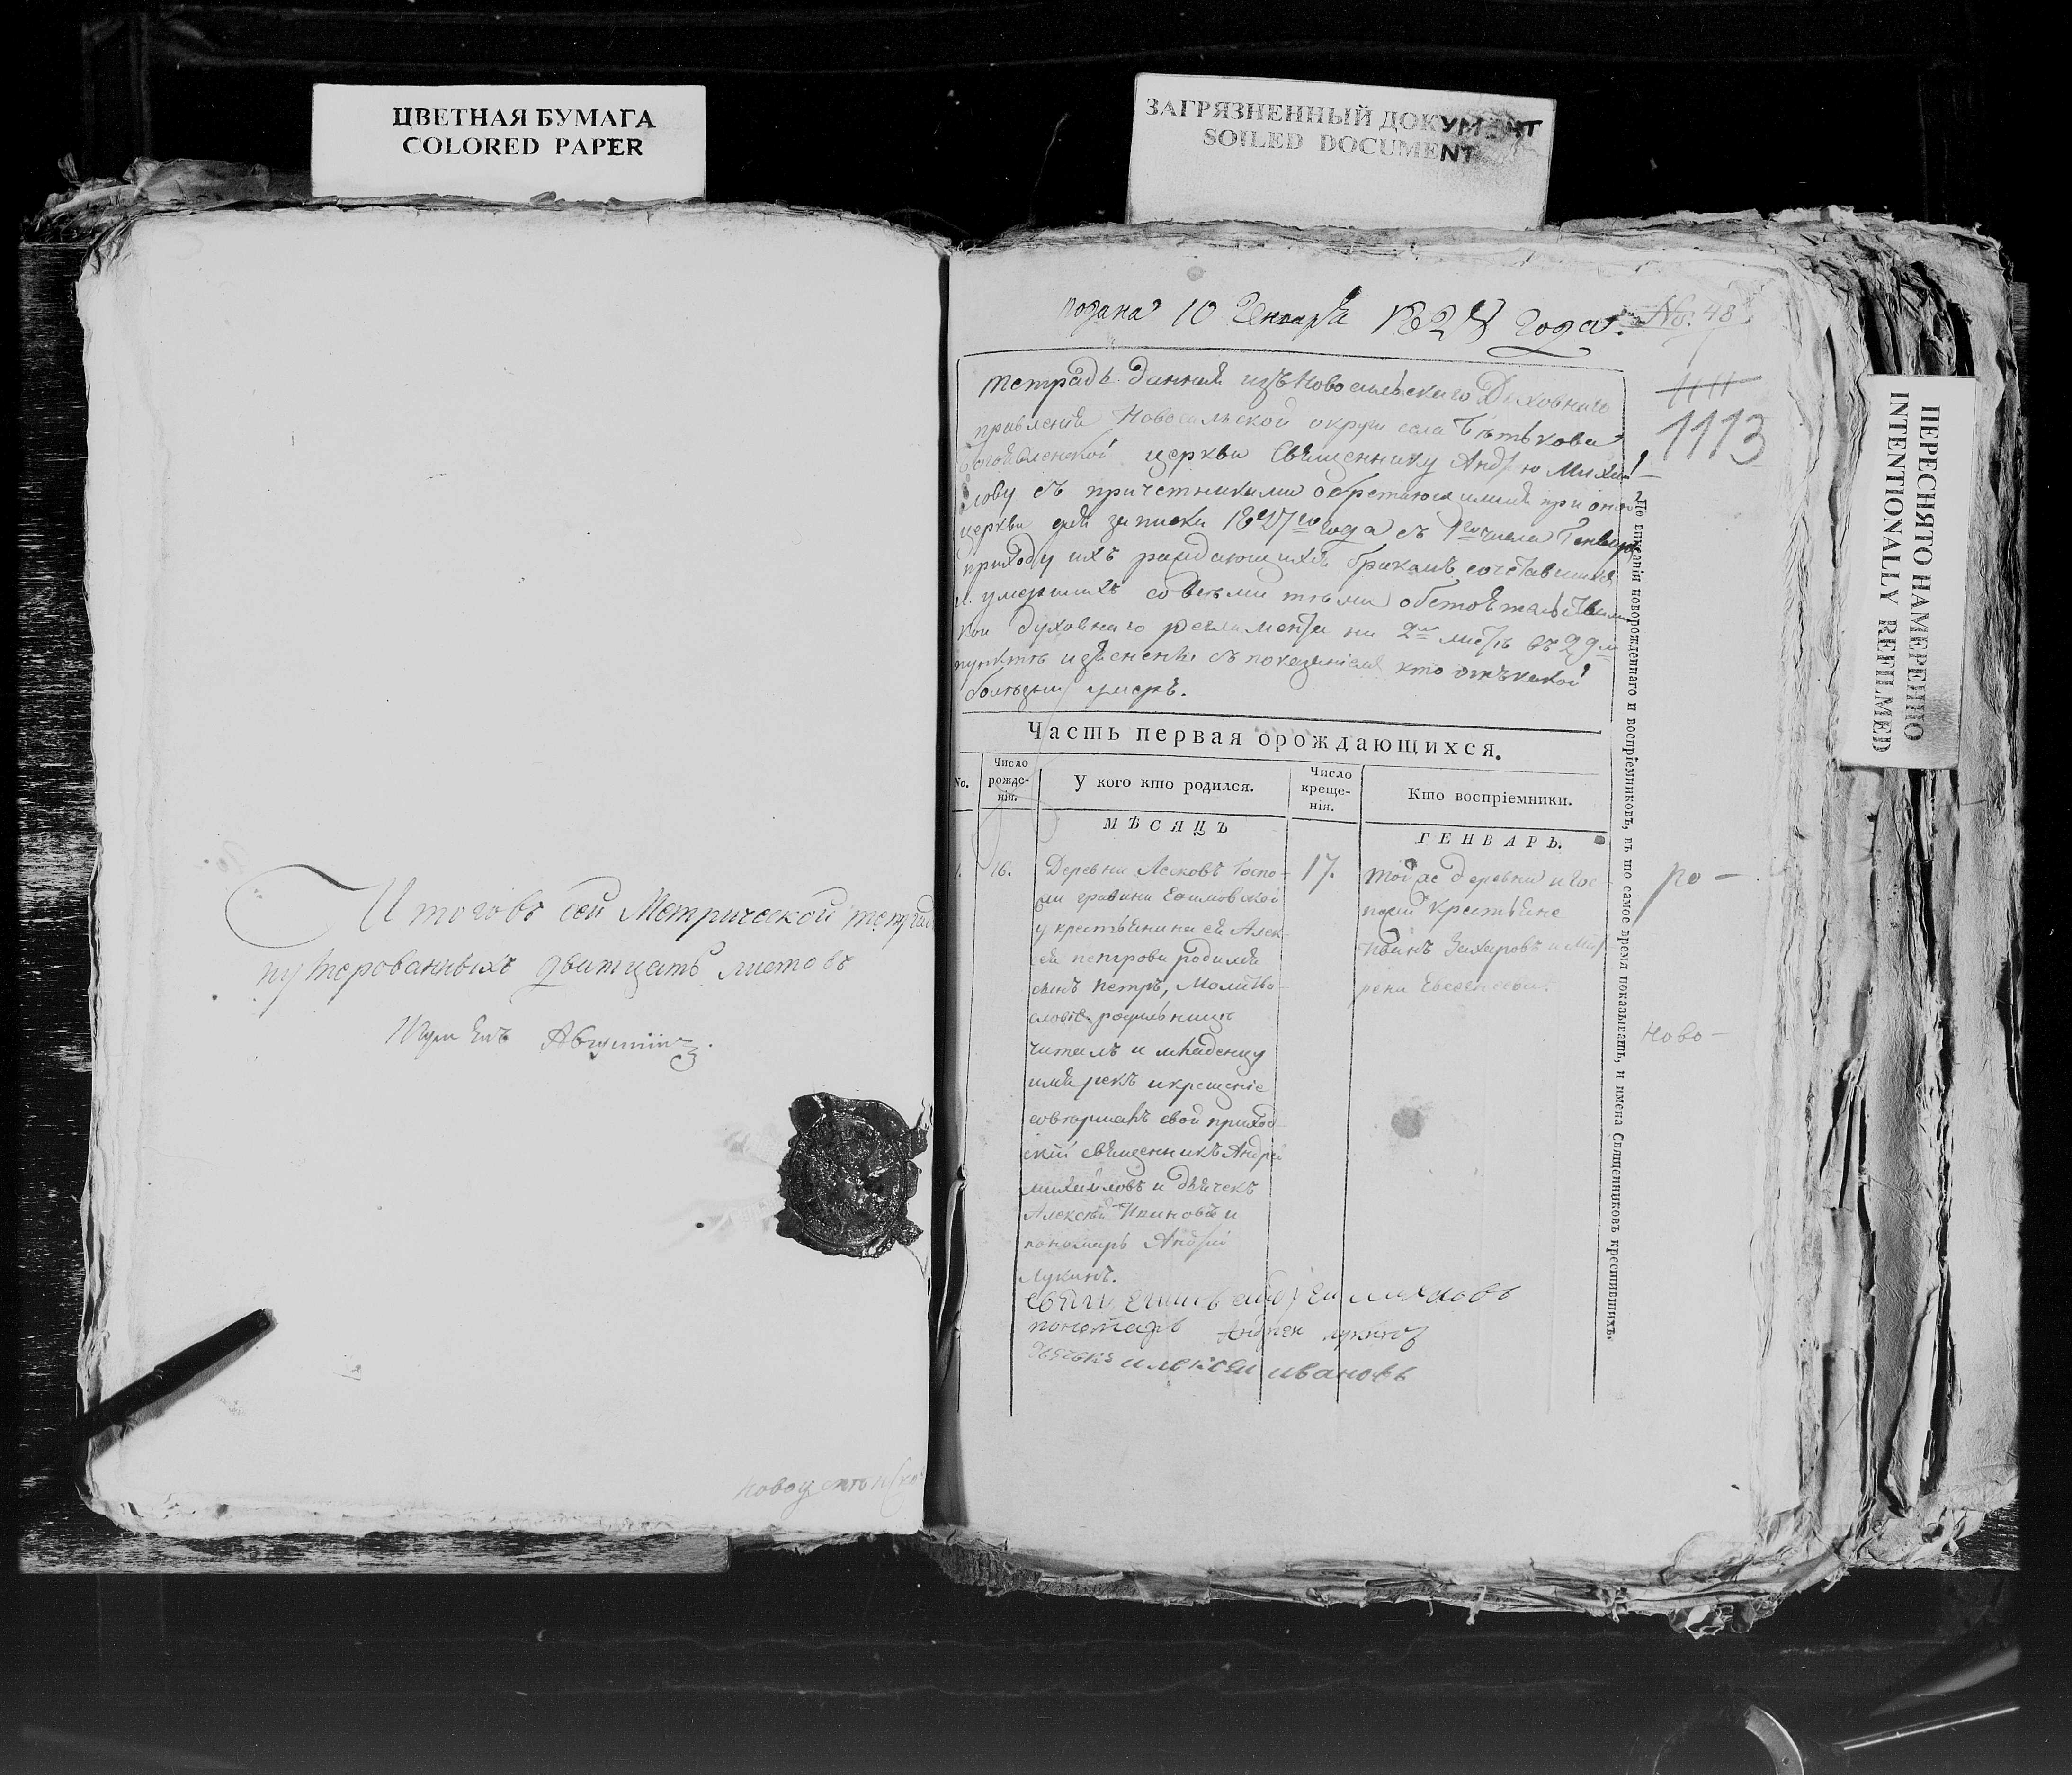 ЦВЕТНАЯ БУМАГА
COLORED PAPER
ЗАГРЯЗНЕННЫЙ ДОКУМЕНТ
SOILED DOCUMENT
ПЕРЕСНЯТО НАМЕРЕННО
INTENTIONALLY REFILMED
Итоговъ сей Метрической тетради
нумерованныхъ дватцать листовъ
Игуменъ
подана 10 Генваря 1828 года.
No. 48
1113
тетрадь данная изъ Новосильскаго Духовнаго
правления Новосильской округи села
церкви Священнику Андрею Михай
лову съ причетниками обретающимися при оной
церкви для записки 1827го года съ 1го числа Генваря
приходу ихъ раждающихся бракомъ сочетавшихся
и умершихъ со всеми теми обстоятельствами
кои духовнаго регламента на 2м листе въ 29м
пункте изъяснены съ показаниемъ кто отъ какой
болезни умеръ.
Часть первая орождающихся.
No.
Число рожде-нія.
У кого кто родился.
Число креще-нія.
Кто воспріемники.
МѢСЯЦЪ
ГЕНВАРЬ.
1.
16.
Деревни Госпо-
жи графини Ефимовской
у крестьянина ея Алек-
сея петрова родился
сынъ петръ, Молитво-
словіе родильнице
читалъ и младенцу
имя рекъ и крещеніе
совершалъ свой приход-
скій священникъ Андрей
михайловъ и дьячекъ
Алексей Ивановъ и
пономарь Андрей
Лукинъ.
17.
той же деревни и гос-
пожи крестьяне
Иванъ Захаровъ и
пономарь Андрей лукинъ
алексей ивановъ
По вписаніи новорожденнаго и воспріемниковъ, въ то самое время показывать, и имена Священниковъ крестившихъ.
ро-
ново-